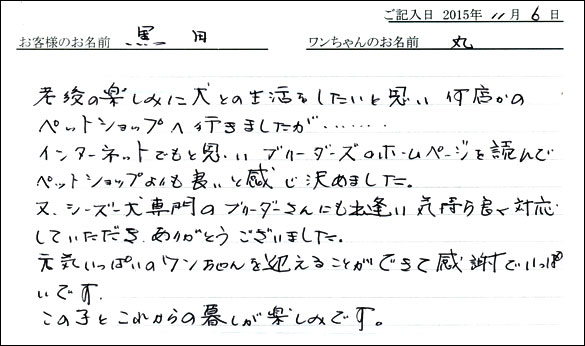 ご記入日 2015年 11月 6日
お客様のお名前 黒田 ワンちゃんのお名前 丸
老後の楽しみに犬との生活をしたいと思い 何店かの
ペットショップへ行きましたが……
インターネットでもと思い ブリーダーズのホームページを読んで
ペットショップよりも良いと感じ決めました。
又、シーズー犬専門のブリーダーさんにも出逢い 気持ち良く対応
していただき、ありがとうございました。
元気いっぱいのワンちゃんを迎えることができて感謝でいっぱ
いです。
この子とこれからの暮しが楽しみです。